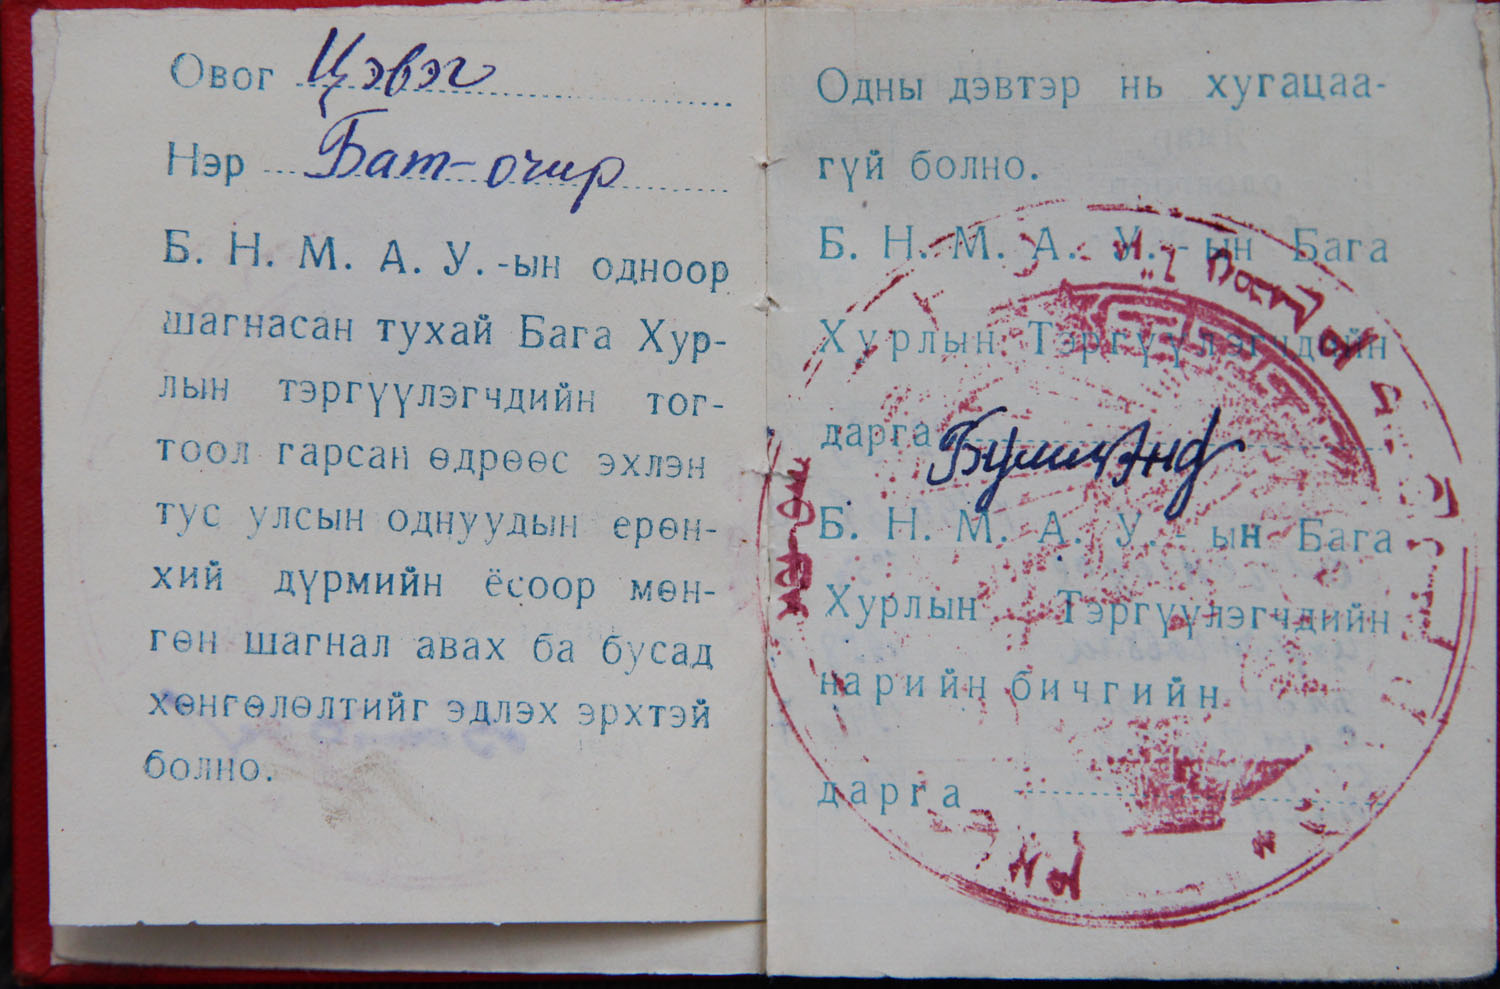 Овог Цэвэг
Нэр Бат-очир
Б. Н. М. А. У.-ын одноор
шагнасан тухай Бага Хур-
лын тэргүүлэгчдийн тог-
тоол гарсан өдрөөс эхлэн
тус улсын однуудын ерөн-
хий дүрмийн ёсоор мөн-
гөн шагнал авах ба бусад
хөнгөлөлтийг эдлэх эрхтэй
болно.
Одны дэвтэр нь хугацаа-
гүй болно.
Б. Н. М. А. У.-ын Бага
Хурлын Тэргүүлэгчдийн
дарга
Б. Н. М. А. У.-ын Бага
Хурлын Тэргүүлэгчдийн
нарийн бичгийн
дарга